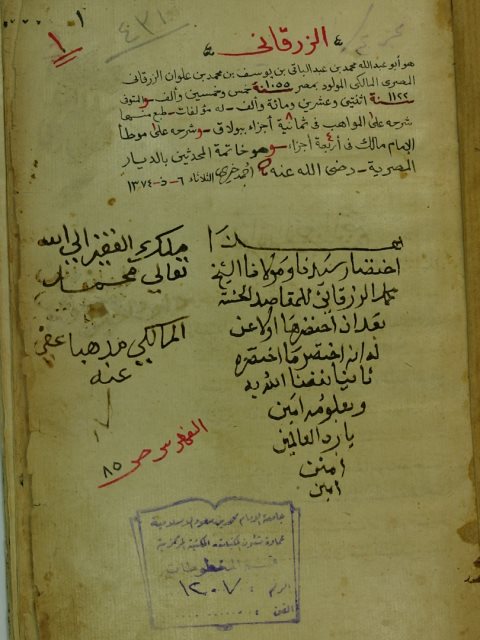 ١
٤٣١
١
الزرقاني
هو أبو عبد الله محمد بن عبد الباقي بن يوسف بن محمد بن علوان الزرقاني
المصرى المالكى المولود بمصر سنة ١٠٥٥ خمس وخمسين وألف - والمتوفى
سنة ١١٢٢ اثنتي وعشرين ومائة وألف - له مؤلفات - طبع منها
شرحه على المواهب فى ثمانية ٨ أجزاء ببولاق - وشرحه على موطأ
الإمام مالك فى أربعة ٤ أجزاء - وهو خاتمة المحدثين بالديار
المصرية - رضى الله عنه الثلاثاء ٦ - ١٣٧٤
هذا
اختصار سيدنا ومولانا الشيخ
محمد الزرقاني للمقاصد الحسنة
بعد ان اختصرها اولا عن
له ان اختصر ما اختصره
ثانيا نفعنا الله به
وبعلومه امين
يا رب العالمين
امين
امين
ملكي الفقير الي الله
تعالي محمد
المالكي مذهبا عفي
عنه
الفهرس ص ٨٥
جامعة الإمام محمد بن سعود الإسلامية
عمادة شئون المكتبات - المكتبة المركزية
قسم المخطوطات
الرقم : ١٢٠٧
الفن :